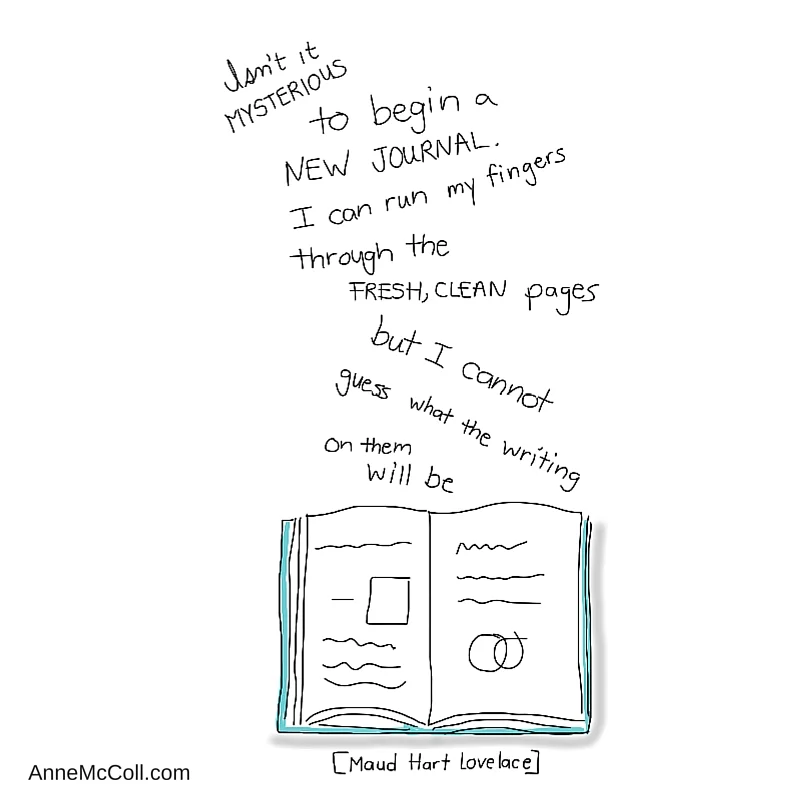 Isn't it
MYSTERIOUS
to begin a
NEW JOURNAL.
I can run my fingers
through the
FRESH, CLEAN pages
but I cannot
guess what the writing
on them
will be
[Maud Hart Lovelace]
AnneMcColl.com